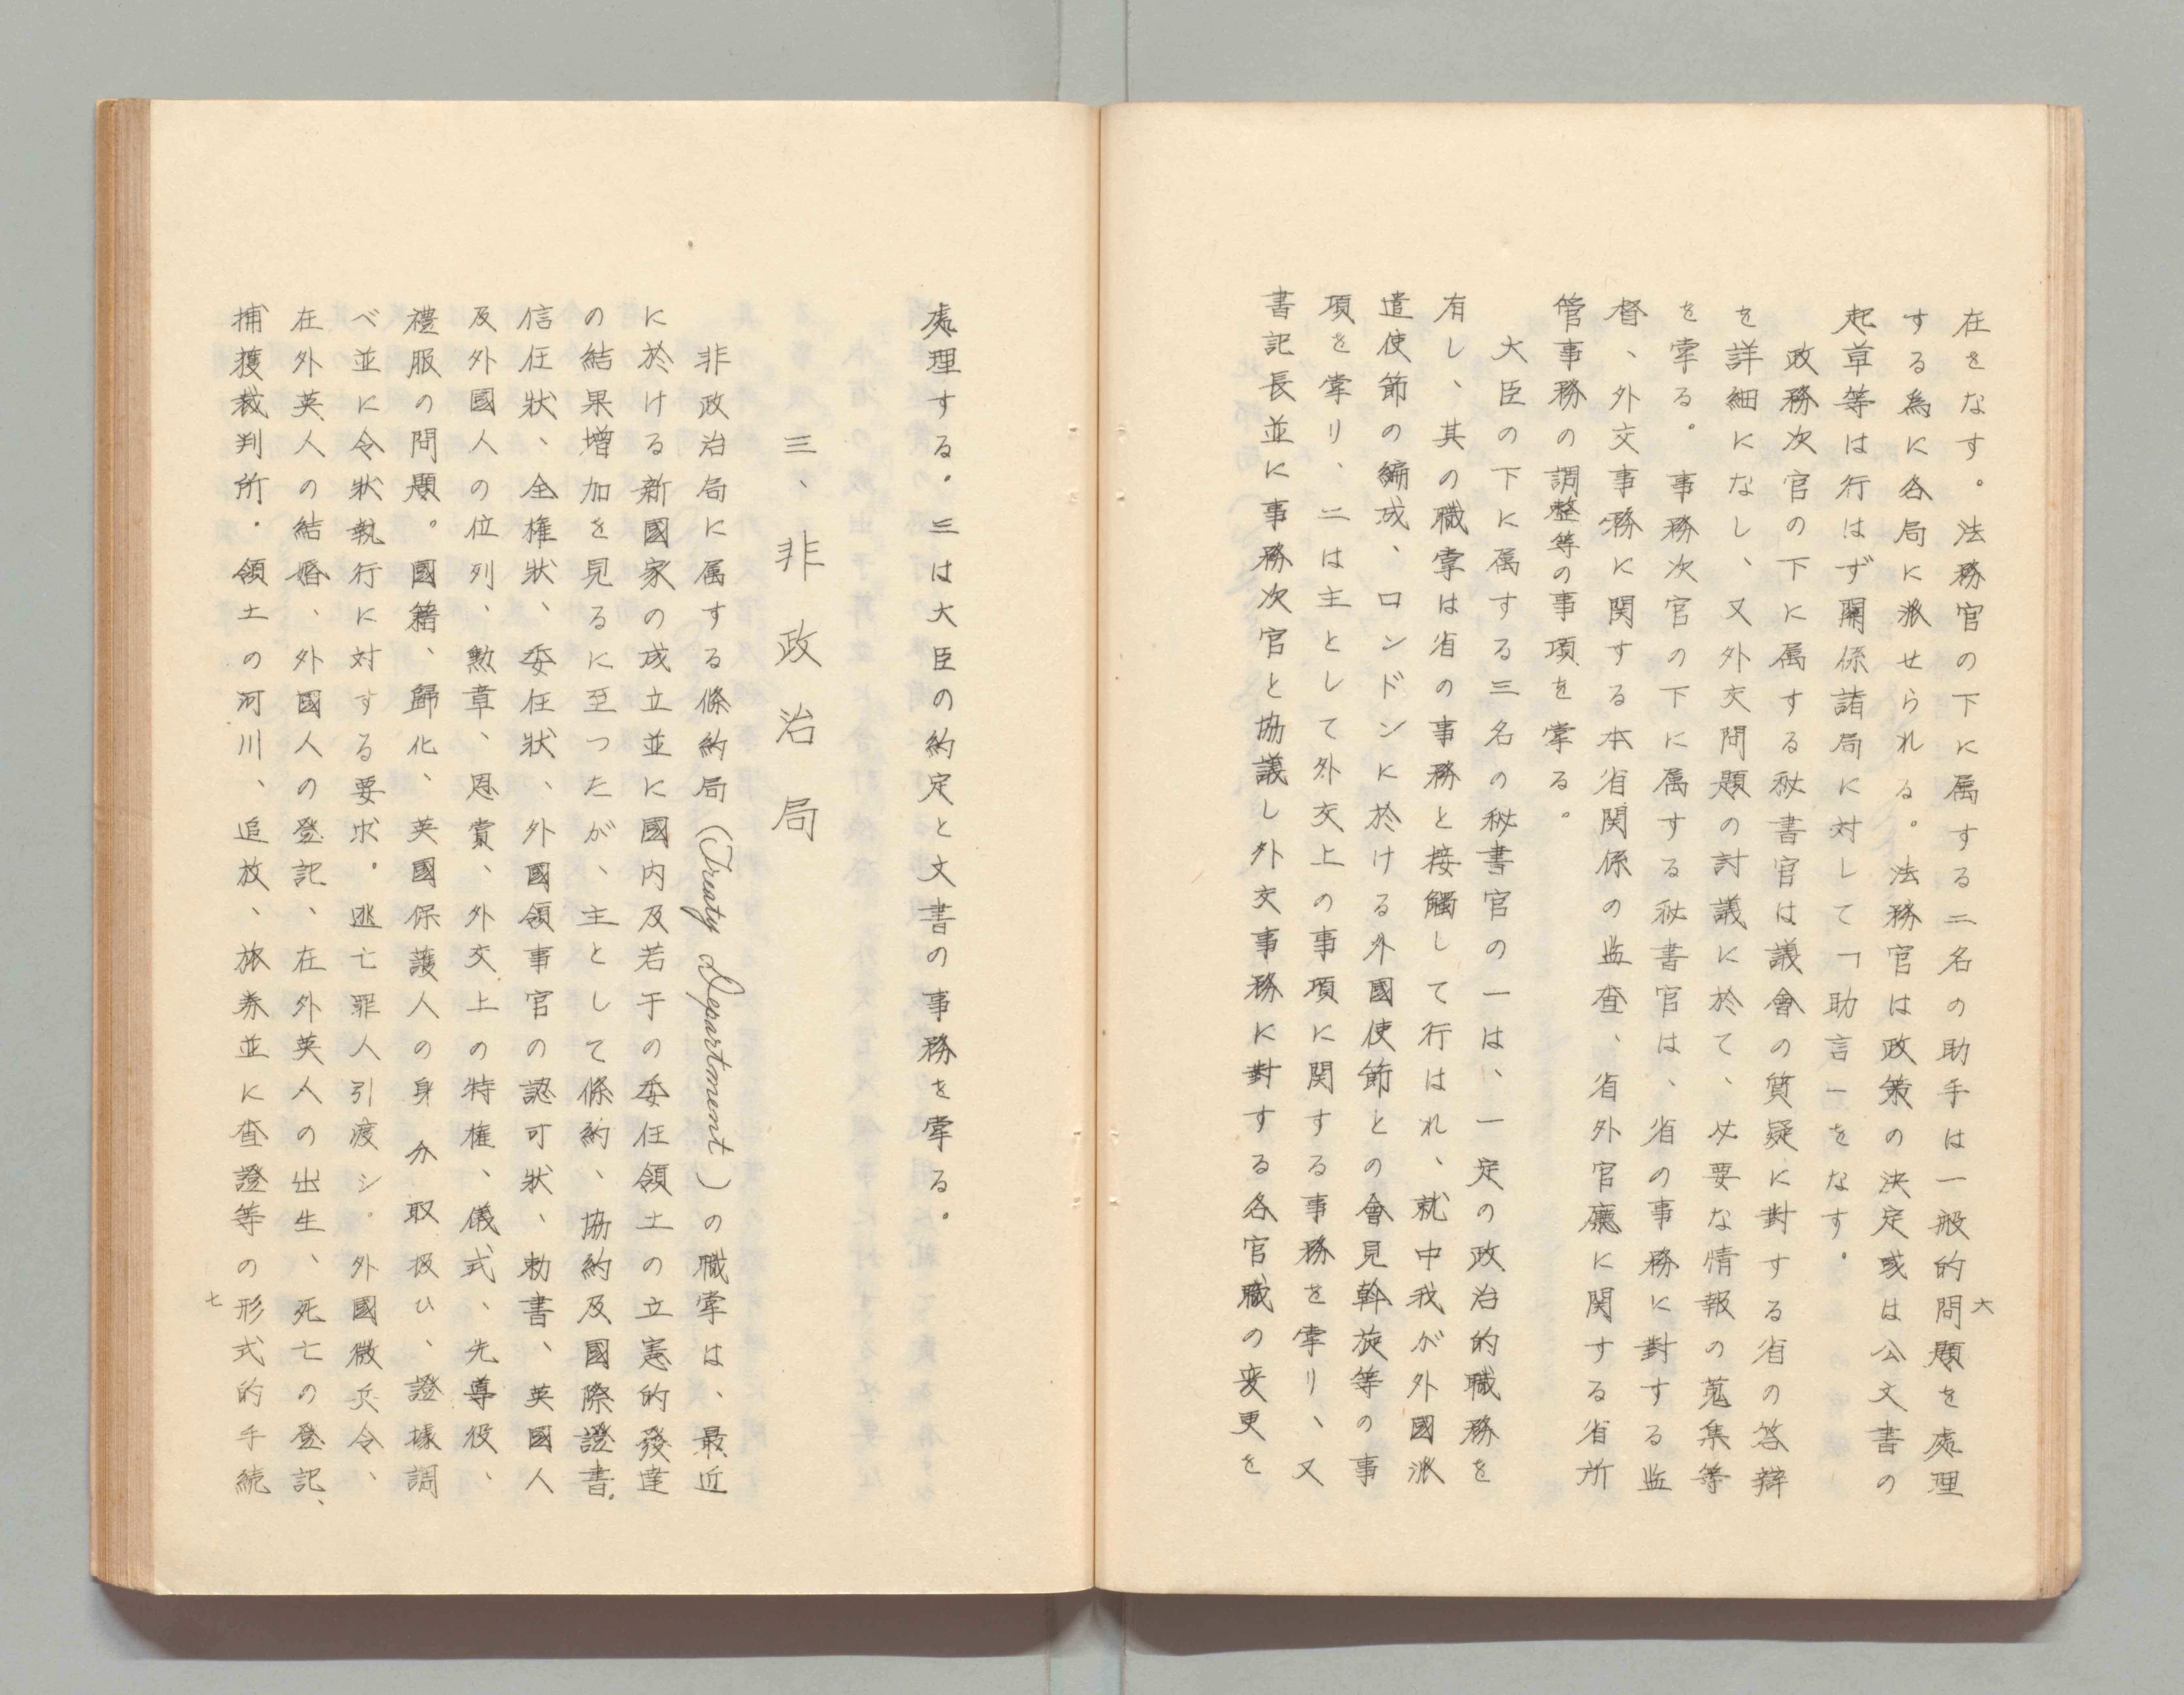 在をなす。法務官の下に属する二名の助手は一般的問題を處理
する為に各局に派せられる。法務官は政策の決定或は公文書の
起草等は行はず關係諸局に対して「助言」をなす。
政務次官の下に属する秘書官は議會の質疑に對する省の答辯
を詳細になし、又外交問題の討議に於て、必要な情報の蒐集等
を掌る。事務次官の下に属する秘書官は、省の事務に對する監
督、外交事務に関する本省関係の監査、省外官廳に関する省所
管事務の調整等の事項を掌る。
大臣の下に属する三名の秘書官の一は、一定の政治的職務を
有し、其の職掌は省の事務と接觸して行はれ、就中我が外國派
遣使節の編成、ロンドンに於ける外國使節との會見斡旋等の事
項を掌り、二は主として外交上の事項に関する事務を掌り、又
書記長並に事務次官と協議し外交事務に對する各官職の変更を
六
處理する。三は大臣の約定と文書の事務を掌る。
三、非政治局
非政治局に属する條約局(Treaty Department)の職掌は、最近
に於ける新國家の成立並に國内及若干の委任領土の立憲的發達
の結果増加を見るに至つたが、主として條約、協約及國際證書。
信任狀、全権狀、委任狀、外國領事官の認可狀、勅書、英國人
及外國人の位列、勲章、恩賞、外交上の特権、儀式、先導役、
禮服の問題。國籍、歸化、英國保護人の身分取扱ひ、證據調
べ並に令狀執行に対する要求。逃亡罪人引渡シ。外國徴兵令、
在外英人の結婚、外國人の登記、在外英人の出生、死亡の登記、
捕獲裁判所。領土の河川、追放、旅券並に査證等の形式的手続
七